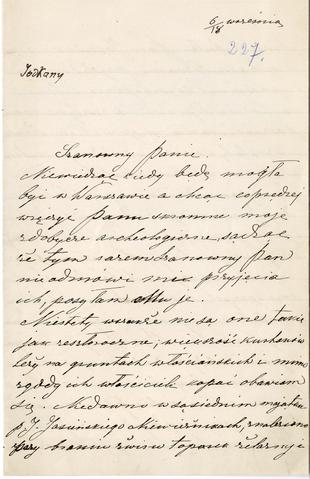 6/18 września
227.
Jodkany
Szanowny Panie.
Niewiedząc kiedy będę mogła
być w Warszawie a chcąc coprędzej
wręczyć Panu skromne moje
zdobycze archeologiczne, sądząc
że i tym razem Szanowny Pan
nie odmówi mi przyjęcia
ich, posyłam Mu je.
Niestety, wszakże nie są one takie
jak zeszłoroczne; większość kurhanów
leży na gruntach włościańskich i mimo
zgody ich właścicieli kopać obawiam
się. Niedawno w sąsiednim majątku
p. J. Jasińskiego znaleziono
parę toporek żelazny i